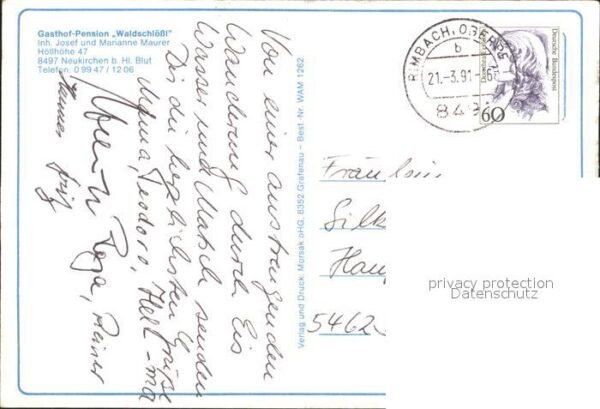 Gasthof-Pension „Waldschlößl"
Inh. Josef und Marianne Maurer
Höllhöhe 47
8497 Neukirchen b. Hl. Blut
Telefon: 0 99 47 / 12 06
Von einer anstrengenden
Wanderung durch Eis
Wasser und Matsch senden
Dir die herzlichsten Grüße
Mama, Teodoro, Herk-ma
Roga, Rainer
Verlag und Druck: Morsak oHG, 8352 Grafenau – Best.-Nr. WAM 1262
RIMBACH, OBERPF
b
21.-3.91-
849
Deutsche Bundespost
60
Fräulein
Silk
Haup
5462
privacy protection
Datenschutz